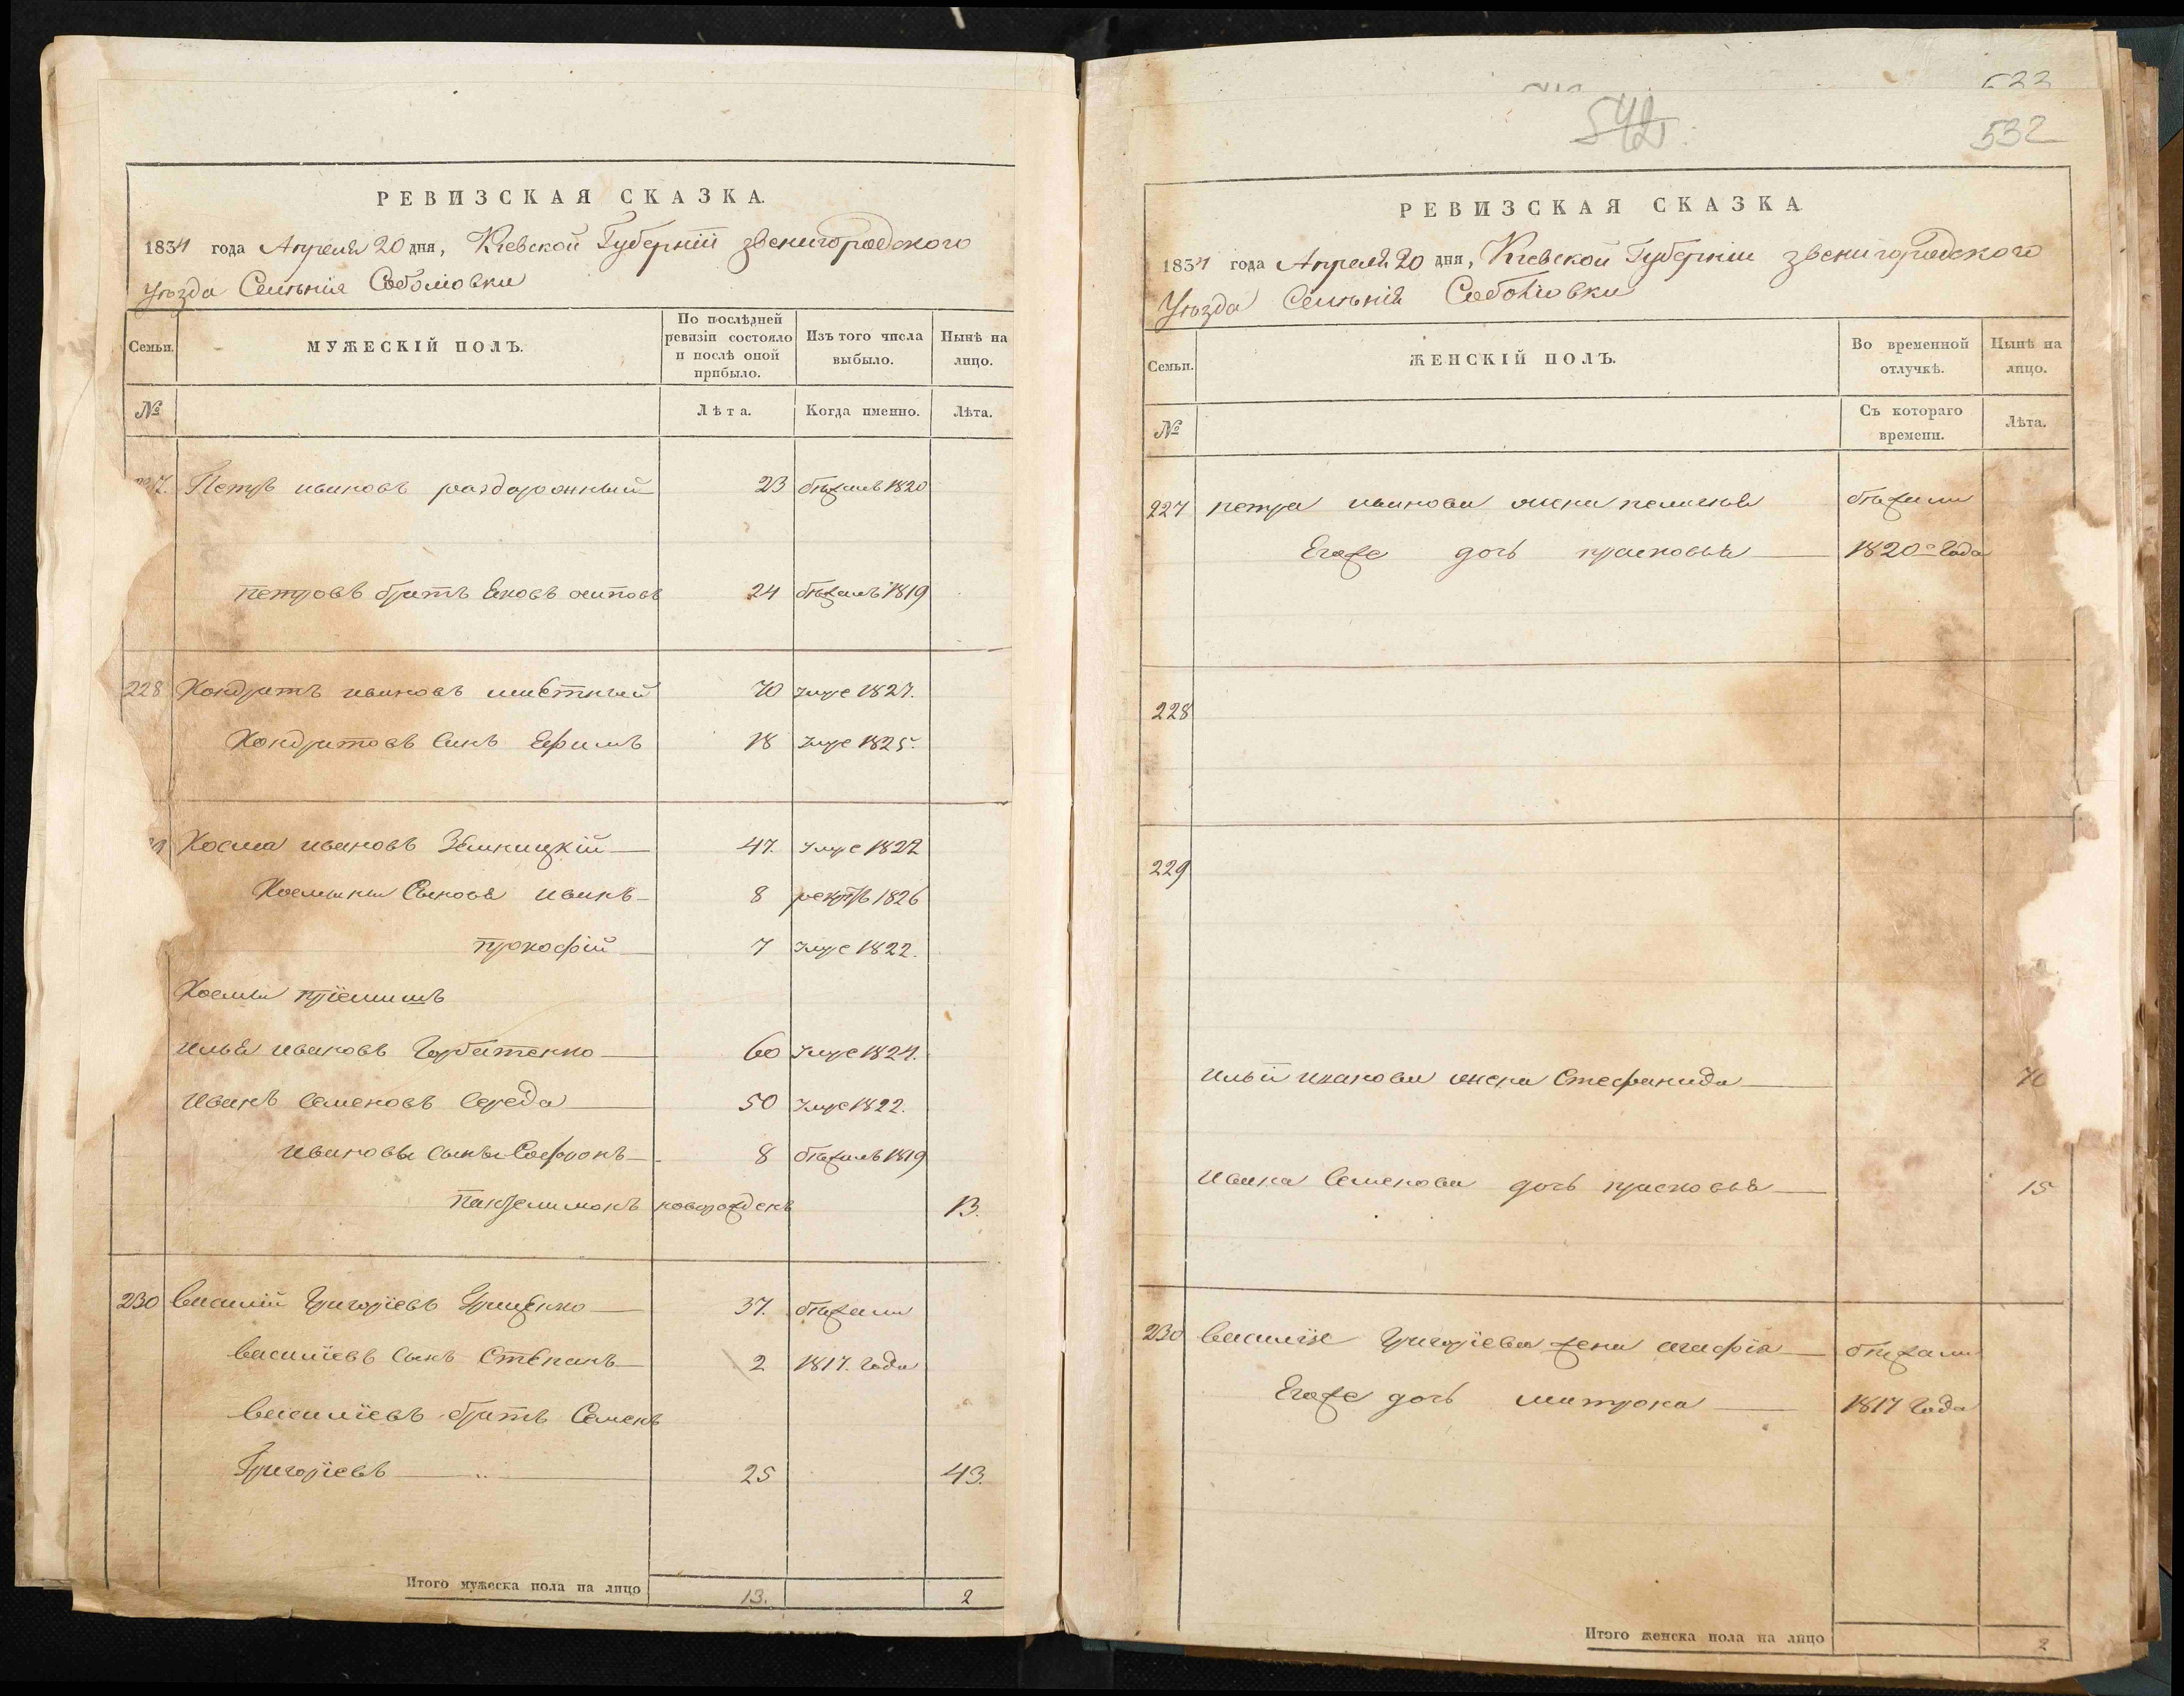 РЕВИЗСКАЯ СКАЗКА.
1834 года Апреля 20 дня, Кіевской Губерніи звенигородского
Уѣзда Селенія Соболіовки
Семьи.
МУЖЕСКІЙ ПОЛЪ.
По послѣдней ревизіи состояло и послѣ оной прибыло.
Изъ того числа выбыло.
Нынѣ на лицо.
№
Лѣта.
Когда именно.
Лѣта.
Петръ ивановъ 23 бѣжалъ 1820
петровъ братъ Яковъ осиповъ 24 бѣжалъ 1819
228 Кондратъ ивановъ 70 умре 1827.
Кондратовъ синъ Ефимъ 18 умре 1825.
Косма ивановъ 47. умре 1822
Сыновя иванъ 8 рекрутъ 1826
прокофій 7 умре 1822.
Космы пріемишъ
илья ивановъ Горбатенко 60 умре 1824.
иванъ Семеновъ Середа 50 умре 1822.
ивановы сыны Софронъ 8 бѣжалъ 1819
пантелимонъ новорожденъ 13.
230 василій Григоріевъ Грищенко 37. бѣжали
василіевъ сынъ Степанъ 2 1817. Года
василіевъ братъ Семенъ
Григоріевъ 25 43.
Итого мужеска пола на лицо 13. 2
532
542
РЕВИЗСКАЯ СКАЗКА
1834 года Апреля 20 дня, Кіевской Губерніи звенигородского
Уѣзда Селенія Соболіовки
Семьи.
ЖЕНСКІЙ ПОЛЪ.
Во временной отлучкѣ.
Нынѣ на лицо.
№
Съ котораго времени.
Лѣта.
227 петра иванова жена пелагея бѣжали
Егоже дочь прасковья 1820го Года
228
229
ильи иванова жена Стефанида
ивана Семенова дочь прасковья 15
230 василія Григоріева жена агафія бѣжали
Егоже дочь матрона 1817 Года
Итого женска пола на лицо 2